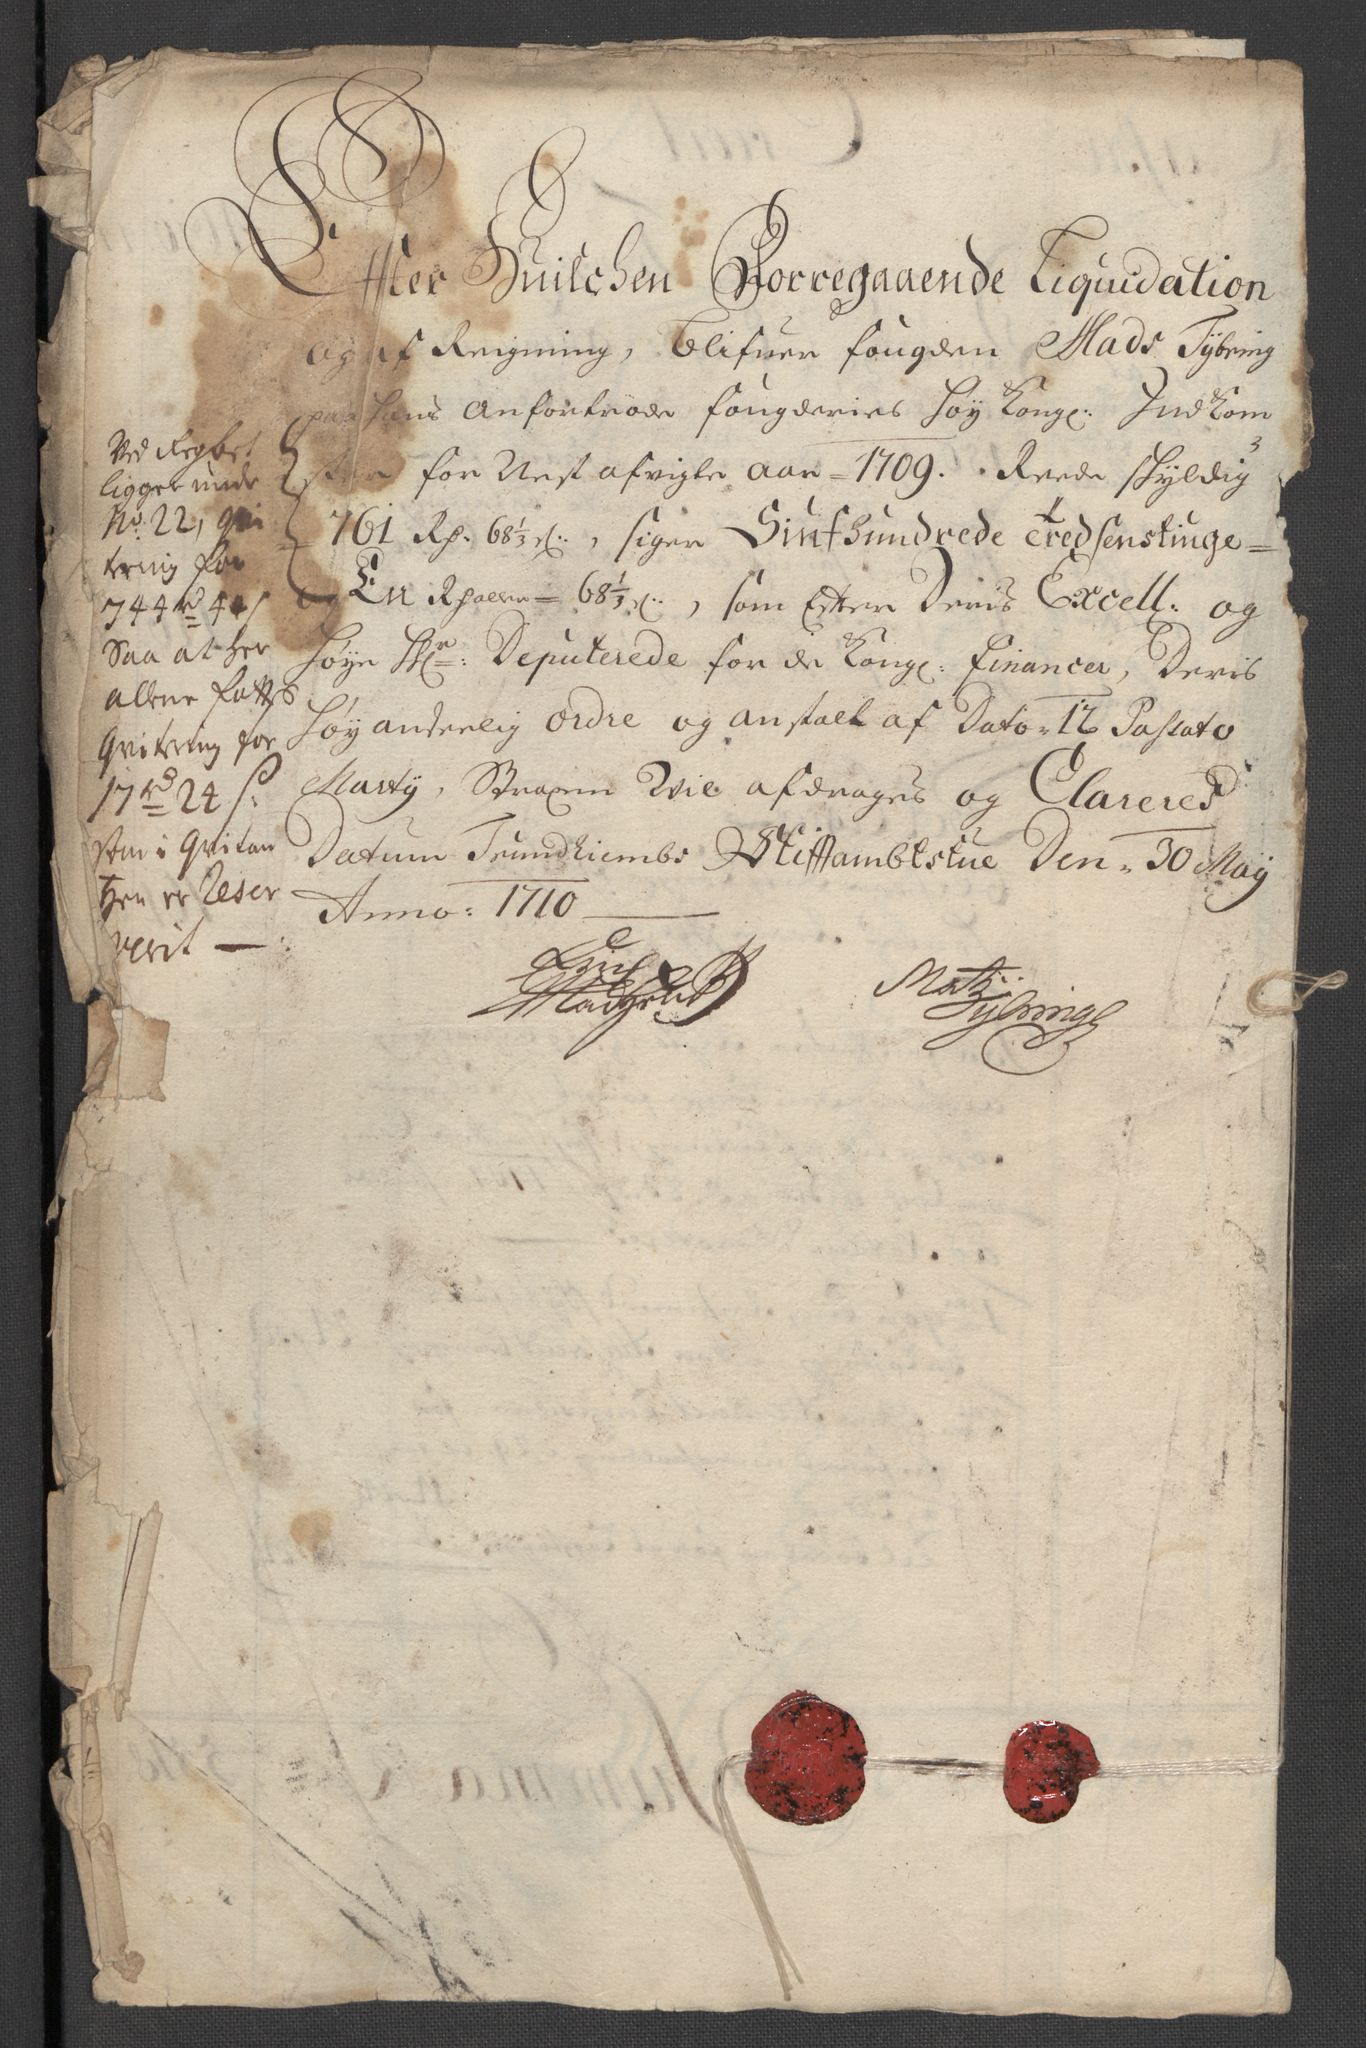 Effter Huilchen Forregaaende Liquidation
og af Reigning, blifuer fougden Mads Tybring
paa hans anfortrode fougderies høy Kongl: Indkom
ster for Nest afvigte aar = 1709. Reede skyldig
761 Rp. 68⅓ sl:, siger Siufhundrede tredsenstiuge =
og En Rpaller = 68⅓ sl:, som Efter Deris Excell: og
høye Hr: Deputerede for de Kongl: Financer, Deris
høy anderlig ordre og anstalt af Dato = 12 Passato
Marty, Straxen Wil afdrages og Clareres
Datum Trundhiembs Stifftambtstue Den = 30 May
Anno: 1710
Ved Regbet
ligger unde
No. 22, qvi
tering for
744 rd 44 s
Saa at her
allene fattes
Qvitering for
17 rd 24 s:
som i Qvitan
tzen er Reser
verit
Mats
Tybring